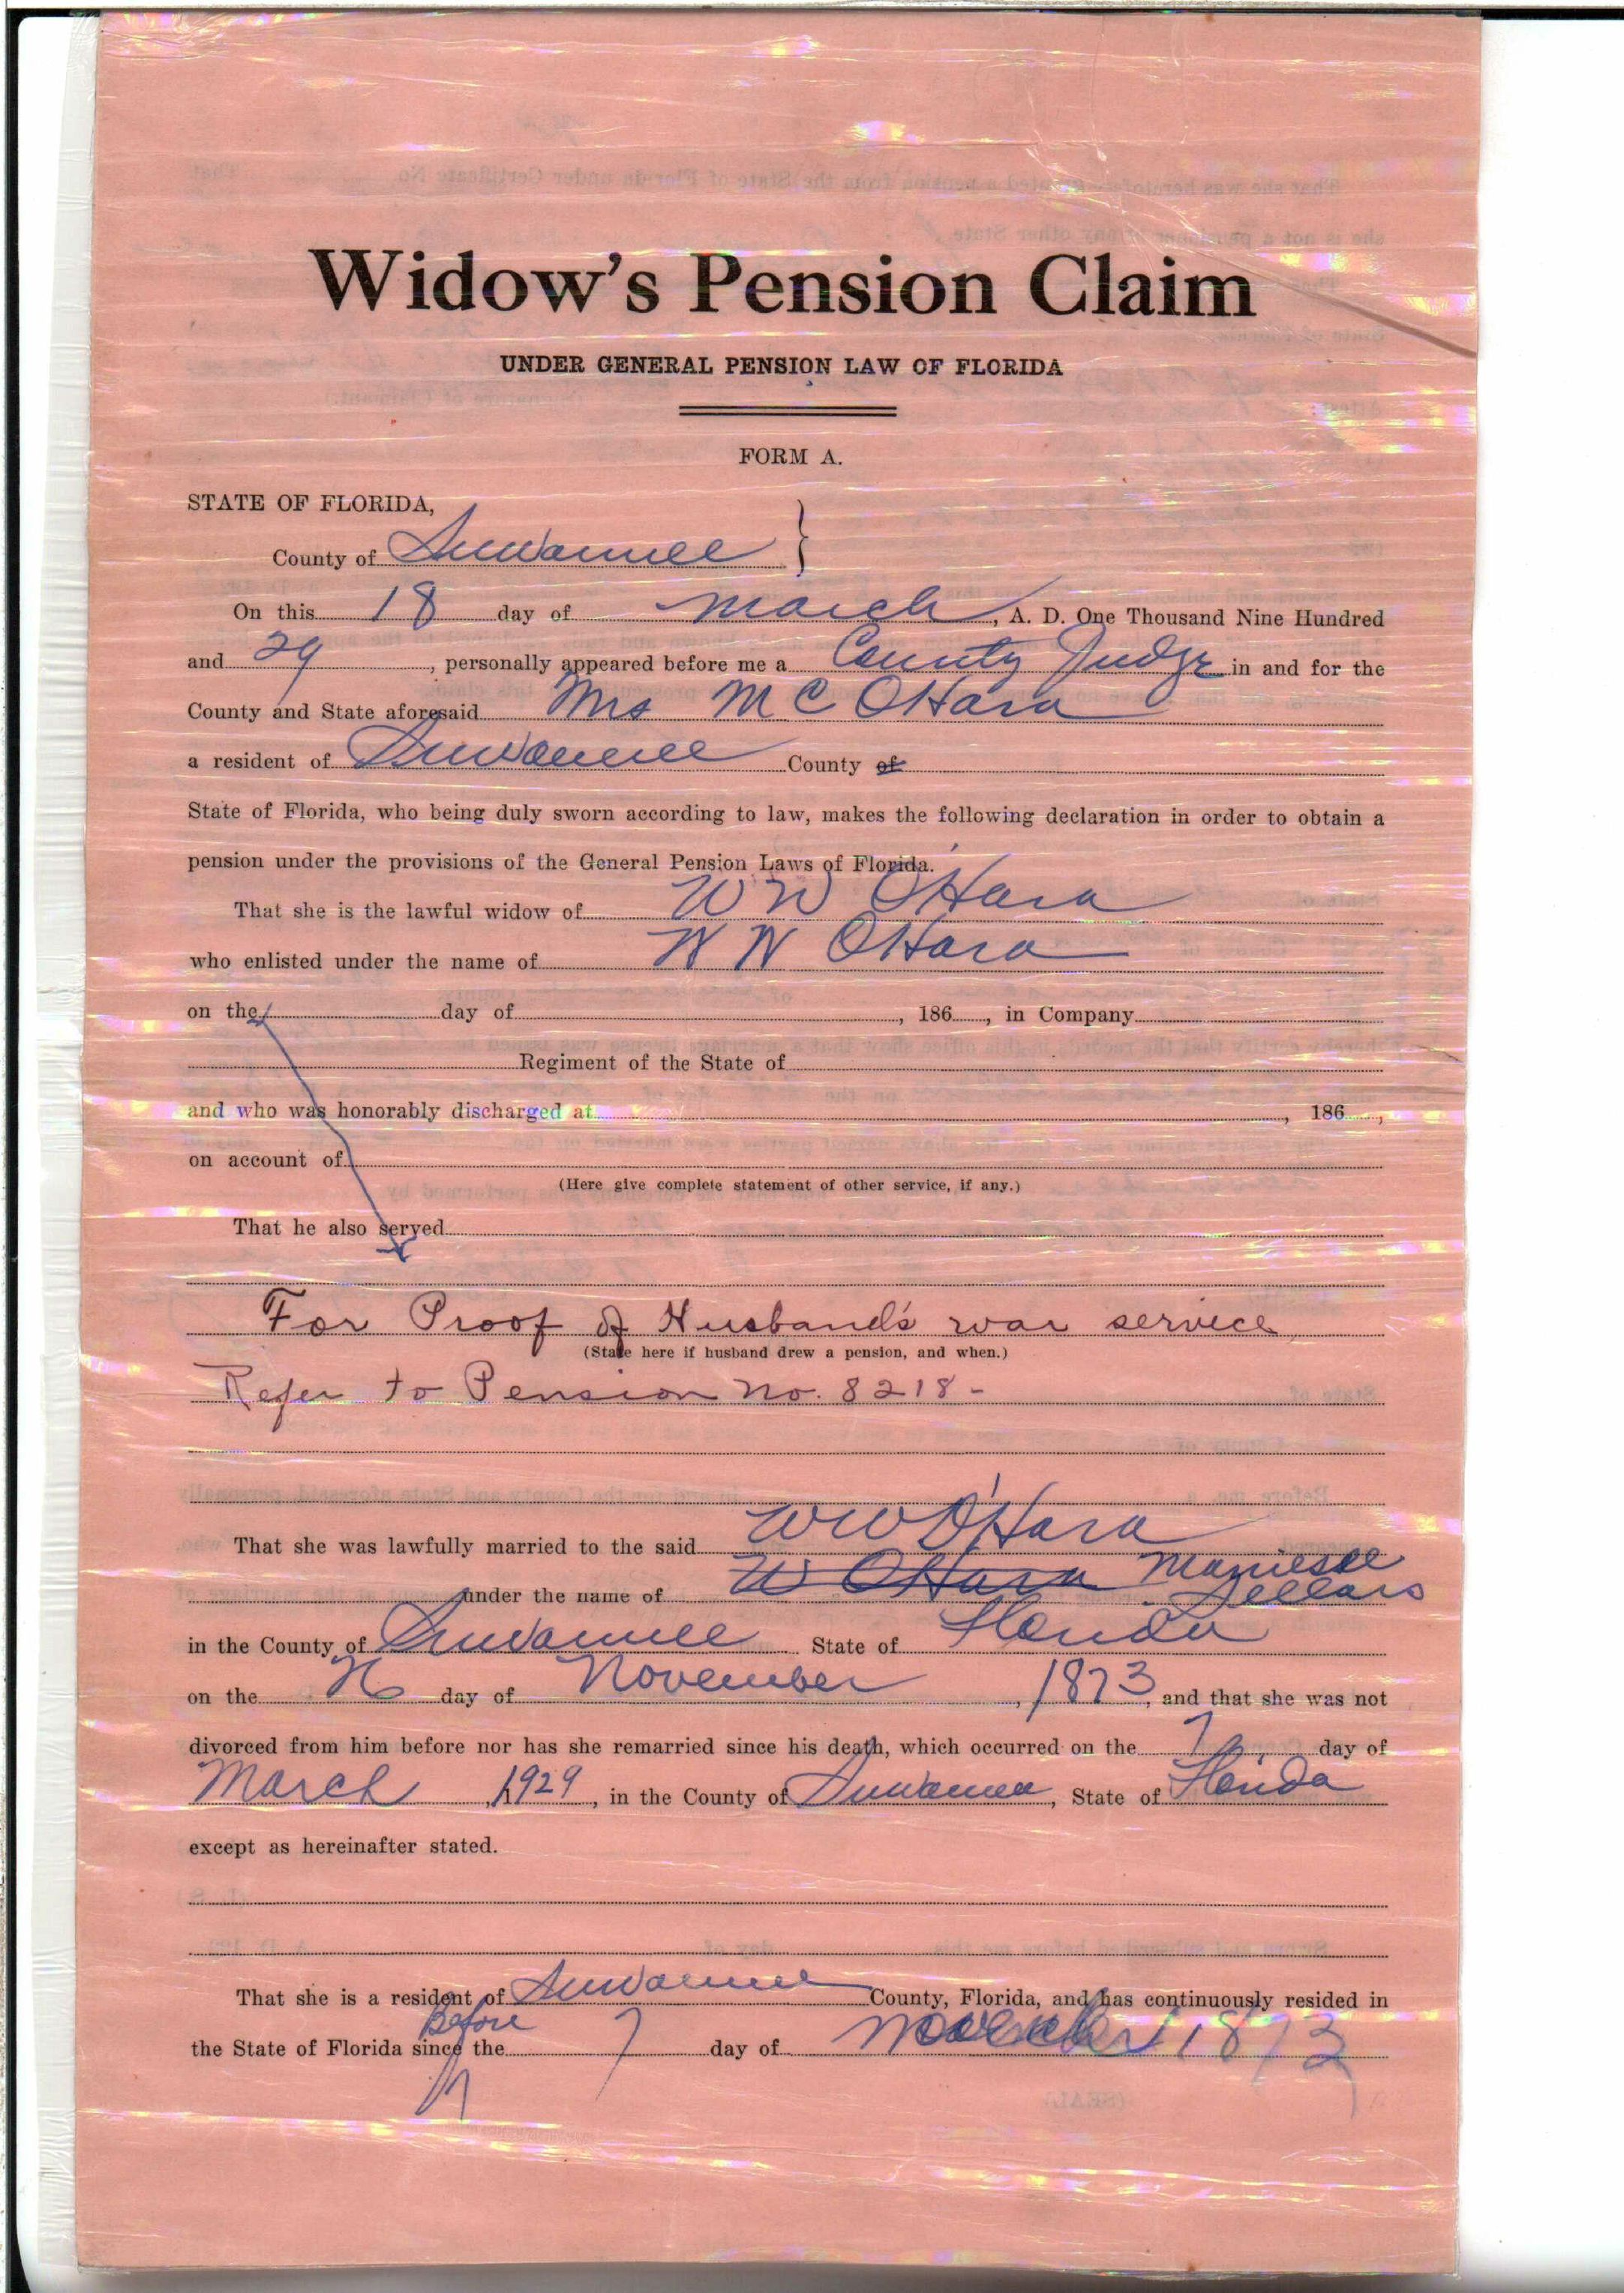 Widow's Pension Claim
UNDER GENERAL PENSION LAW OF FLORIDA
FORM A.
STATE OF FLORIDA,
County of Suwannee }
On this 18 day of March, A. D. One Thousand Nine Hundred
and 29, personally appeared before me a County Judge in and for the
County and State aforesaid Mrs M C OHara
a resident of Suwannee County of
State of Florida, who being duly sworn according to law, makes the following declaration in order to obtain a
pension under the provisions of the General Pension Laws of Florida.
That she is the lawful widow of W W O'Hara
who enlisted under the name of W W OHara
on the day of , 186 , in Company
Regiment of the State of
and who was honorably discharged at , 186 ,
on account of
(Here give complete statement of other service, if any.)
That he also served
For Proof of Husband's war service
(State here if husband drew a pension, and when.)
Refer to Pension No. 8218-
That she was lawfully married to the said W W O'Hara
under the name of W OHara Sellars
in the County of Suwannee State of Florida
on the 26 day of November, 1873, and that she was not
divorced from him before nor has she remarried since his death, which occurred on the 7 day of
March, 1929, in the County of Suwannee, State of Florida
except as hereinafter stated.
That she is a resident of Suwannee County, Florida, and has continuously resided in
Before
the State of Florida since the 7 day of November 1873